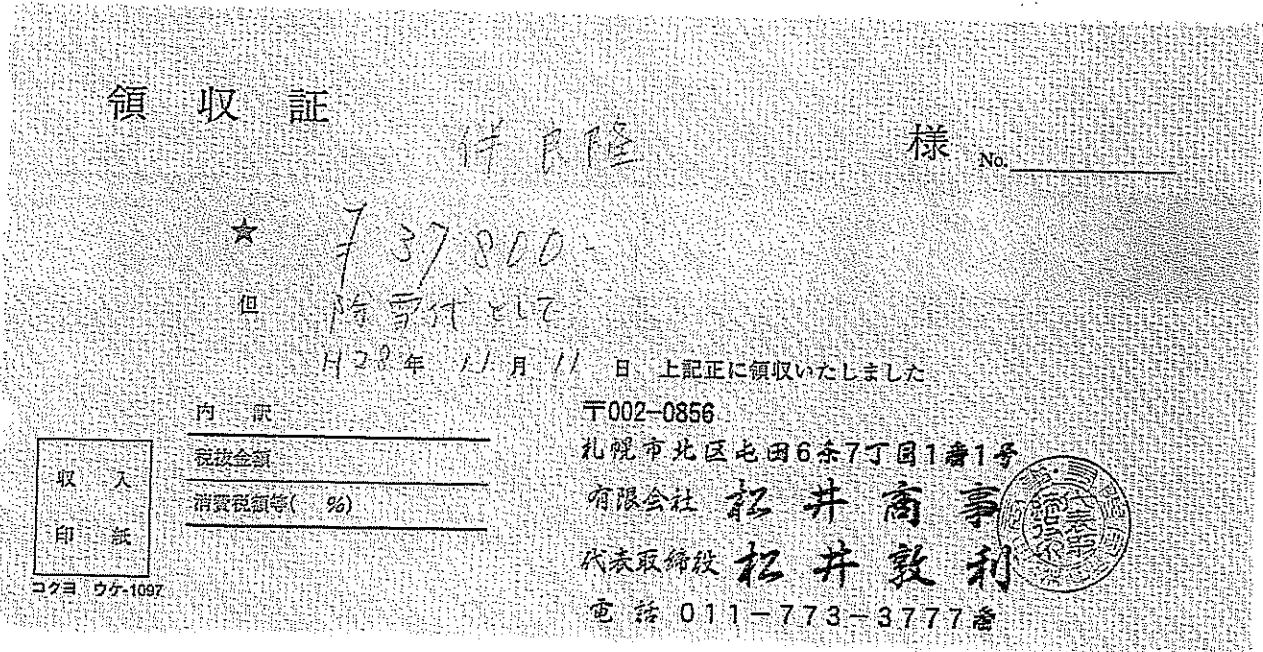 領収証
伴良隆 様 No.
★ ¥37,800-
但 除雪代として
H28年 11月 11日 上記正に領収いたしました
内訳
税抜金額
消費税額等( %)
収入
印紙
コクヨ ウケ-1097
〒002-0856
札幌市北区屯田6条7丁目1番1号
有限会社 松井商事
代表取締役 松井敦利
電話 011-773-3777番